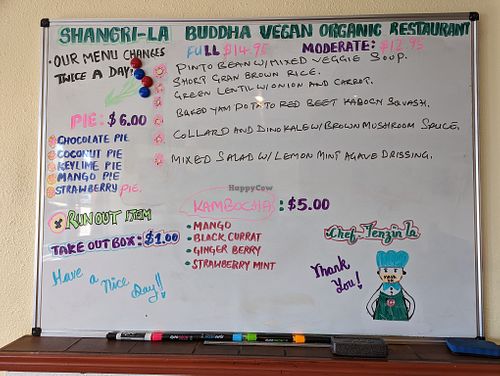 SHANGRI-LA BUDDHA VEGAN ORGANIC RESTAURANT
• OUR MENU CHANGES
TWICE A DAY!
FULL $14.95 MODERATE: $12.95
PINTO BEAN W/MIXED VEGGIE SOUP.
SHORT GRAN BROWN RICE.
GREEN LENTIL W/ONION AND CARROT.
BAKED YAM POTATO RED BEET KABOCH SQUASH.
COLLARD AND DINO KALE W/BROWN MUSHROOM SAUCE.
MIXED SALAD W/LEMON MINT AGAVE DRISSING.
PIE: $6.00
CHOCOLATE PIE
COCONUT PIE
KEYLIME PIE
MANGO PIE
STRAWBERRY PIE.
RUN OUT ITEM
TAKE OUT BOX: $1.00
Have a
nice
Day!!
HappyCow
KAMBOCHA: $5.00
• MANGO
• BLACK CURRAT
• GINGER BERRY
• STRAWBERRY MINT
Chef-Tenzin la
Thank
You!